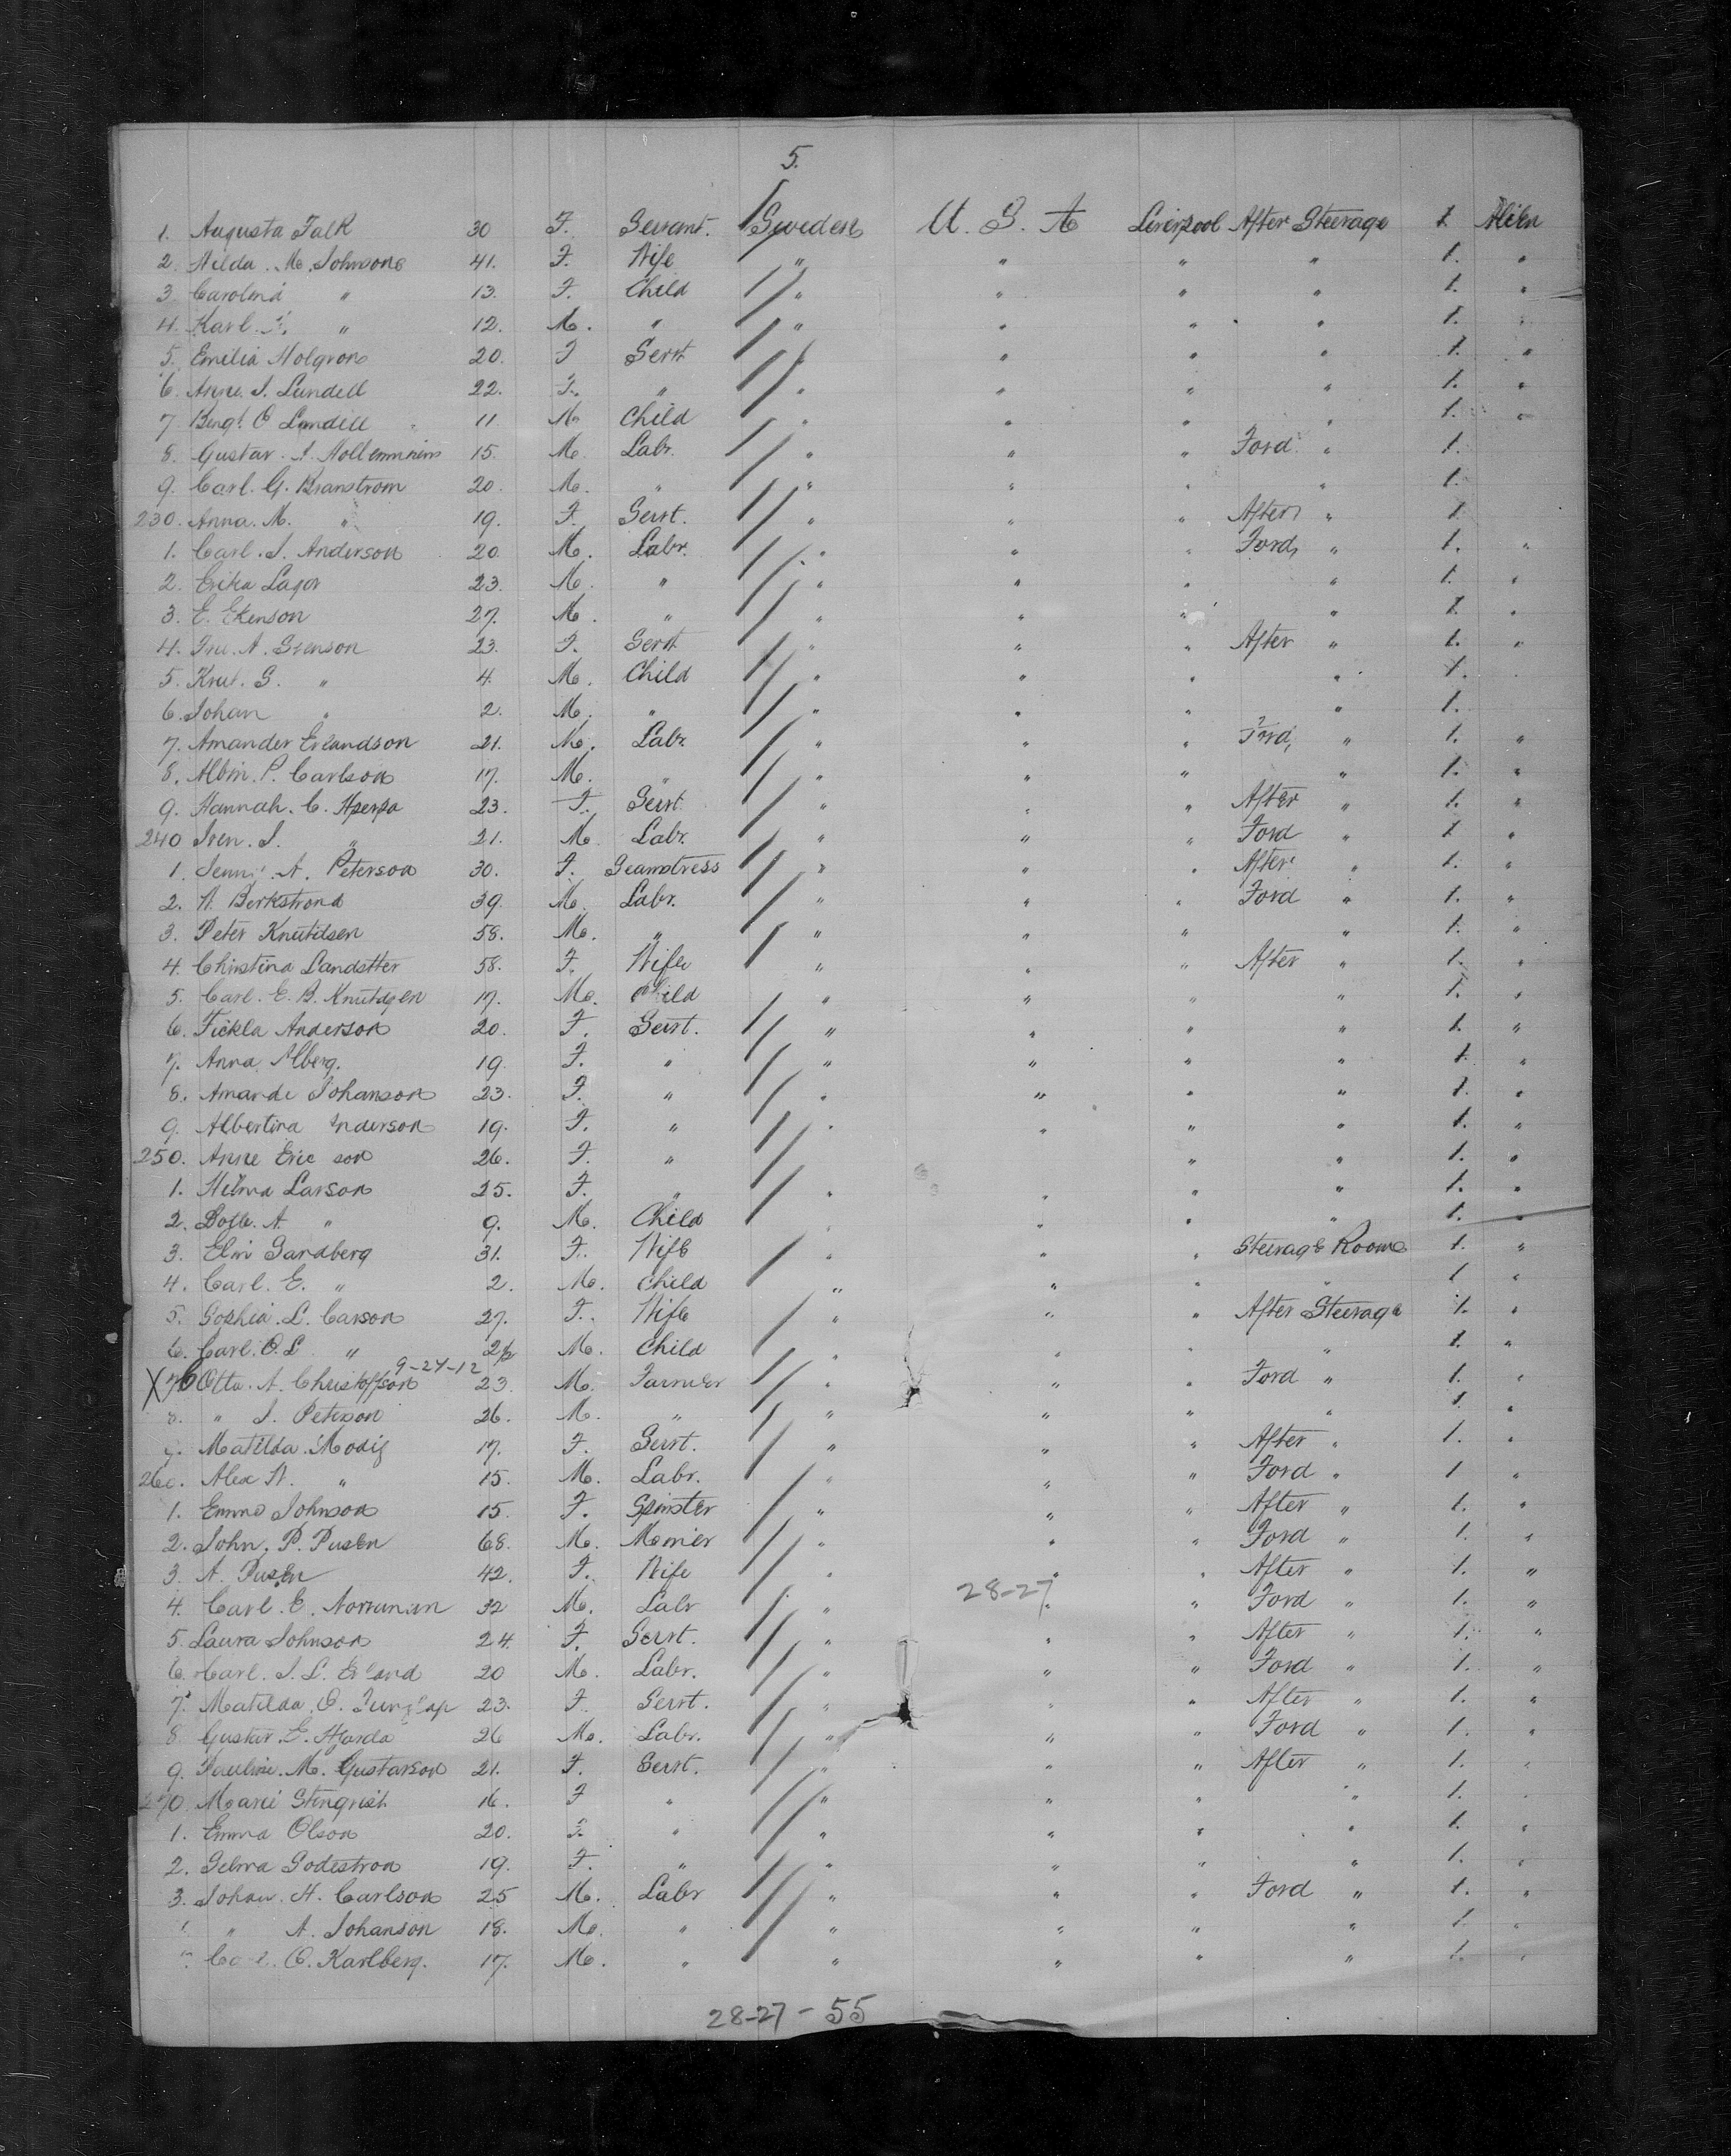 5.
1. Augusta Falk 30 F. Servant. Sweden U. S. A Liverpool After Steerage 1. Alien
2. Hilda. M. Johnson 41. F. Wife " " " " 1. "
3. Carolina " 13. F. Child " " " " 1. "
4. Karl. " 12. M. " " " " " 1. "
5. Emilia Holgron 20. F Servt " " " " 1. "
6. Anna. S. Lundell 22. F. " " " " " 1. "
7. Bengt. O Lundell 11 M. Child " " " " 1. "
8. Gustav. A. 15. M. Labr. " " " Ford. " 1.
9. Carl. G. Branstrom 20. M. " " " " " 1.
230. Anna. M. " 19. F. Servt. " " " After " 1
1. Carl. S. Anderson 20 M. Labr. " " " Ford, " 1. "
2. Erika Lagor 23. M. " " " " " 1. "
3. E. Ekenson 27. M. " " " " " 1. "
4. A. Svenson 23. F. Servt " " " After " 1. "
5. Knut. G. " 4. M. Child " " " " 1.
6. Johan " 2. M. " " " " " 1.
7. Amander Erlandson 21. M. Labr. " " " Ford, " 1. "
8. Albin. P. Carlson 17. M. " " " " " 1. "
9. Hannah. C. 23. F. Servt. " " " After " 1. "
240 Sven. S. " 21. M. Labr. " " " Ford " 1 "
1. Jenny. A. Peterson 30. F. Seamstress " " " After " 1. "
2. A. Berkstrond 39. M. Labr. " " " Ford " 1. "
3. Peter Knutdsen 58. M. " " " " " 1. "
4. Christina Landstter 58. F. Wife " " " After " 1. "
5. Carl. E. B. Knutdsen 17. M. Child " " " " 1. "
6. Tickla Anderson 20. F. Servt. " " " " 1. "
7. Anna Alberg. 19. F. " " " " " 1. "
8. Amande Johanson 23. F. " " " " " 1. "
9. Albertina Anderson 19. F. " " " " " 1. "
250. Anne Ericson 26. F. " " " 1. "
1. Helma Larson 25. F. " " " " " 1. "
2. A. " 9. M. Child " " " " 1. "
3. Elin Sandberg 31. F. Wife " " " Steerage Rooms 1. "
4. Carl. E. " 2. M. Child " " " " 1 "
5. Sophia. L. Carson 27. F. Wife " " " After Steerage 1. "
6. Carl. O. L " 2½ M. Child " " " " 1. "
9-24-12
X 7 Otto. A. Christoffson 23. M. Farmer " " " Ford " 1. "
8. " J. Peterson 26. M. " " " " " 1. "
9. Matilda. Modig 17. F. Servt. " " " After " 1. "
260. Alex W. " 15. M. Labr. " " " Ford " 1 "
1. Emma Johnson 15. F. Spinster " " " After " 1. "
2. John, P. Pusen 68. M. " " " Ford " 1. "
3. A. Pusen 42. F. Wife " " " After " 1. "
28-27
4. Carl. E. 32 M. Labr " " " Ford " 1. "
5. Laura Johnson 24. F. Servt. " " " After " 1. "
6. Carl. J. L. Erland 20 M. Labr. " " " Ford " 1. "
7. Matilda. O. 23. F Servt. " " " After " 1. "
8 Gustav. E. Hjorda 26 M. Labr. " " " Ford " 1. "
9. Pauline. M. Gustavson 21. F. Servt. " " " After " 1. "
270 Marie Stinqvist. 16. F " " " " " 1. "
1. Emma Olson 20. F. " " " " " 1. "
2. Selma Sodestron 19. F. " " " " " 1. "
3. Johan. H. Carlson 25 M. Labr " " " Ford " 1. "
" A. Johanson 18. M. " " " " " 1. "
O. Karlberg. 17. M. " " " " " 1. "
28-27-55